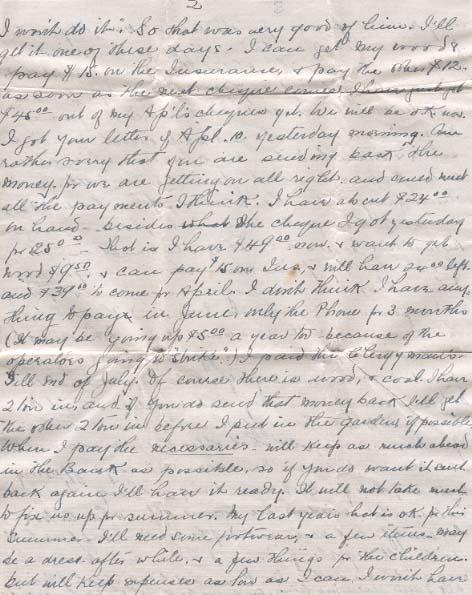 2
I won't do it". So that was very good of him. I'll
get it one of these days. I can get my wood &
pay $15. on the Insurance, & pay the other $12.
as soon as the next cheque comes. I have just got
$45.00 out of my Apl's cheques yet. We will be ok now.
I got your letter of Apl. 10. yesterday morning. Am
rather sorry that you are sending back the
money. for we are getting on all right. and could meet
all the payments I think. I have about $24.00
on hand. besides the cheque I got yesterday
for $25.00 That is I have $49.00 now. & want to get
wood $9.50. & can pay $15 on Ins. & will have left
and $39.00 to come for April. I don't think I have any
thing to pay in June, only the Phone for 3 months
(It may be going up $5.00 a year too because of the
operators going to "strike".) I paid the clergyman
till end of July. Of course there is wood, & coal. I have
2 ton in, and if you do send that money back will get
the other 2 ton in before I put in the gardens if possible
When I pay the necessaries will keep as much ahead
in the Bank as possible, so if you do want it sent
back again I'll have it ready. It will not take much
to fix us up for summer. My last years hat is ok for this
summer. I'll need some footwear, & a few items. may
be a dress after while, & a few things for the children.
but will keep expenses as low as I can. I won't have